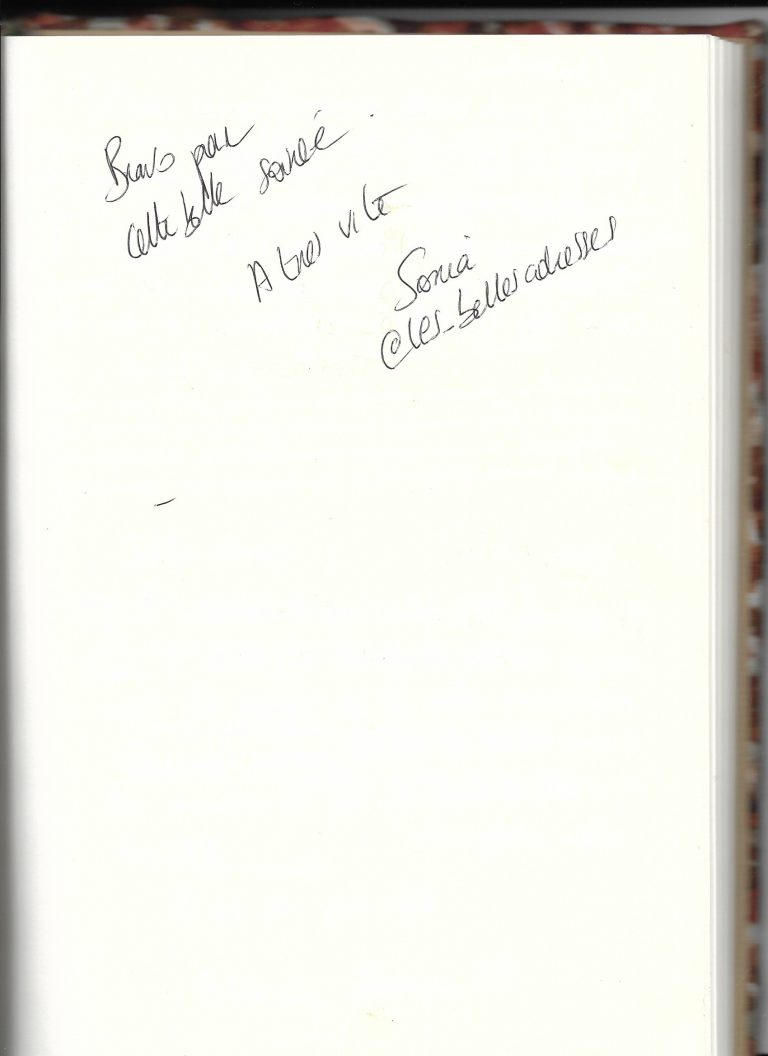 Bravo pour
cette belle soirée.
A très vite
Sonia
@les_bellesadresses